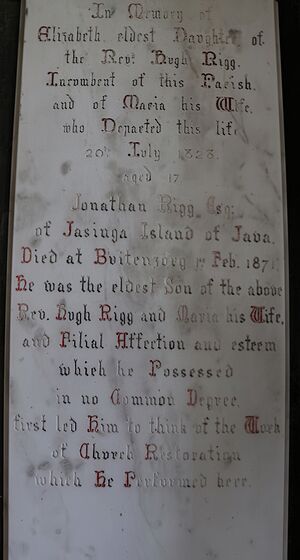 In Memory of
Elizabeth, eldest Daughter of
the Rev: Hugh Rigg.
Incumbent of this Parish,
and of Maria his Wife,
who Departed this life
20th July 1828.
aged 17
Jonathan Rigg Esq:
of Jasinga Island of Java.
Died at Buitenzorg 1st Feb. 1871
He was the eldest Son of the above
Rev. Hugh Rigg and Maria his Wife,
and Filial Affection and esteem
which he Possessed
in no Common Degree,
first led Him to think of the Work
of Church Restoration
which He Performed here.